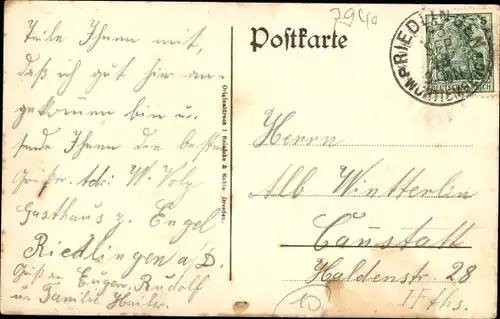 Teile Ihnen mit,
daß ich gut hier an-
gekommen bin u.
sende Ihnen die besten
Grüße. Adr: W. Volz
Gasthaus z. Engel
Riedlingen a/D.
Gruß an Eugen, Rudolf
u. Familie
7940
Postkarte
RIEDLINGEN
5 5
DEUTSCHES REICH
Originaldruck
Dresden.
Herrn
Alb Wintterlin
Canstatt
Haldenstr. 28
II Ths.